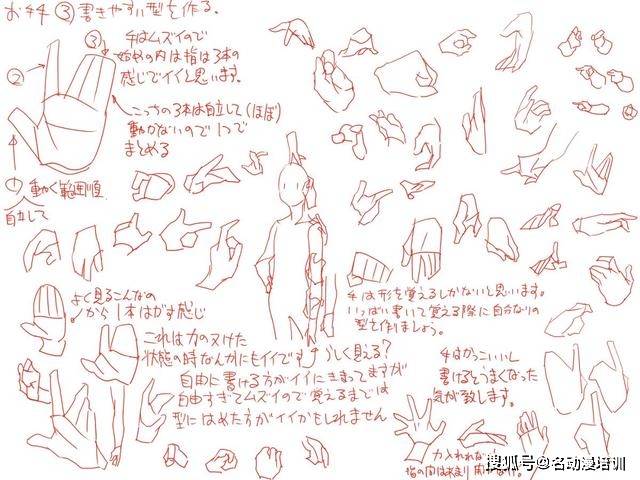 お手手 ③ 書きやすい型を作る.
手はムズイので
始めの内は指は3本の
感じでイイと思います.
①
②
③
こっちの3本は自立して(ほぼ)
動かないので1つで
まとめる
動く範囲順
自立して
よく見るこんなの
から1本はがす感じ
これは力のヌけた
状態の時なんかにもイイです
らしく見える?
自由に書ける方がイイにきまってますが
自由すぎてムズイので覚えるまでは
型にはめた方がイイかもしれません
手は形を覚えるしかないと思います.
いっぱい書いて覚える際に自分なりの
型を作りましょう.
手はかっこいいし
書けるとうまくなった
気が致します.
力入れ
指の間は
搜狐号@名动漫培训